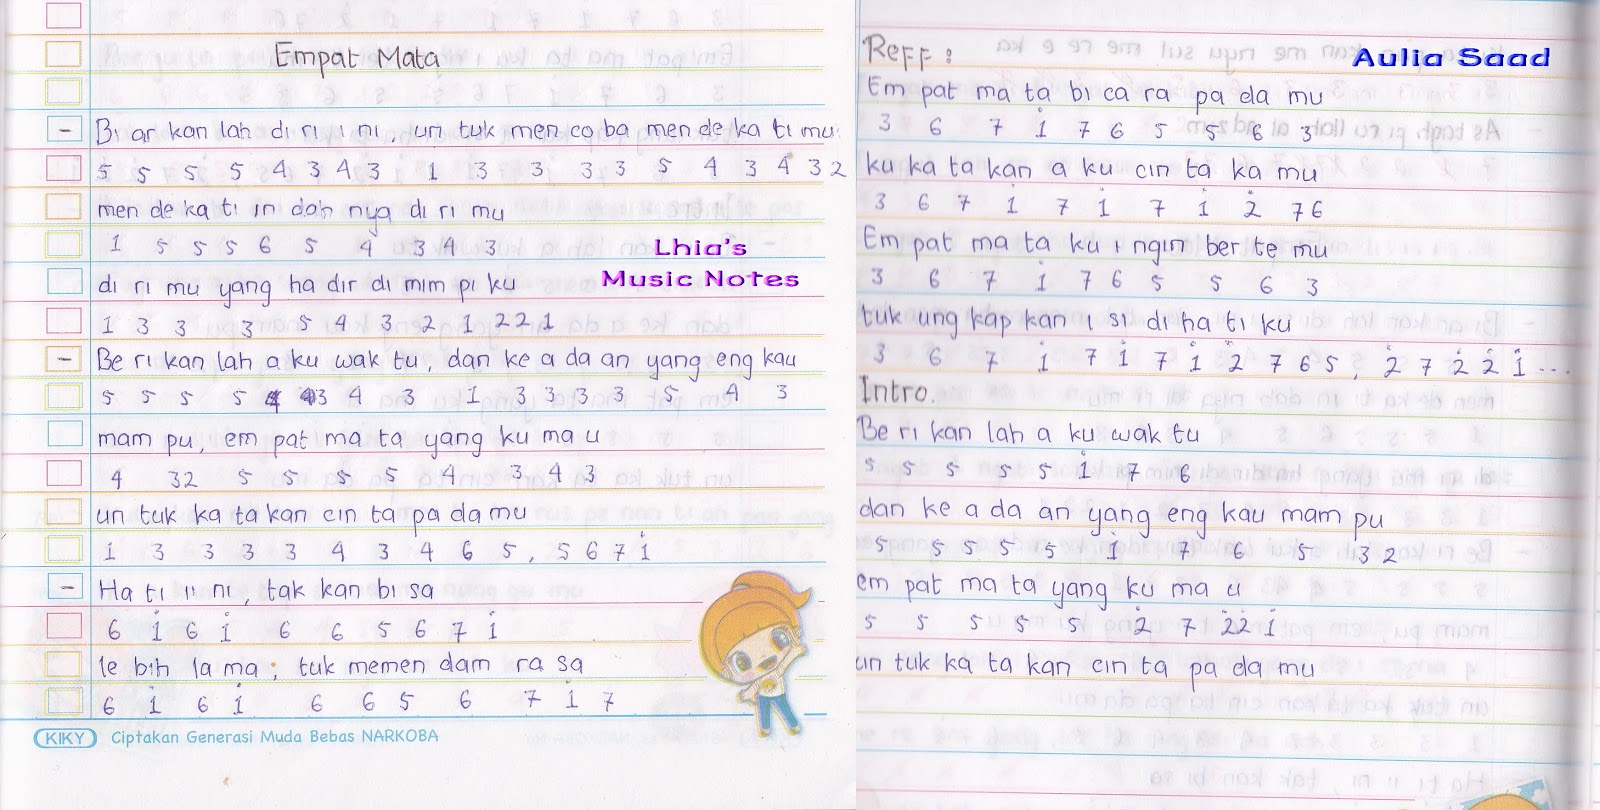 Empat Mata
- Bi ar kan lah di ri i ni, un tuk men co ba men de ka ti mu
5 5 5 5 4 3 4 3 1 3 3 3 3 5 4 3 4 3 2
men de ka ti in dah nya di ri mu
1 5 5 5 6 5 4 3 4 3
Lhia's
Music Notes
di ri mu yang ha dir di mim pi ku
1 3 3 3 5 4 3 2 1 2 2 1
- Be ri kan lah a ku wak tu, dan ke a da an yang eng kau
5 5 5 5 3 4 3 1 3 3 3 3 5 4 3
mam pu, em pat ma ta yang ku ma u
4 32 5 5 5 5 4 3 4 3
un tuk ka ta kan cin ta pa da mu
1 3 3 3 3 4 3 4 6 5, 5 6 7 i
- Ha ti ii ni, tak kan bi sa
6 i 6 i 6 6 5 6 7 i
le bih la ma; tuk memen dam ra sa
6 i 6 i 6 6 5 6 7 i 7
KIKY Ciptakan Generasi Muda Bebas NARKOBA
Reff:
Aulia Saad
Em pat ma ta bi ca ra pa da mu
3 6 7 i 7 6 5 5 6 3
ku ka ta kan a ku cin ta ka mu
3 6 7 i 7 i 7 i 2̇ 7 6
Em pat ma ta ku i ngin ber te mu
3 6 7 i 7 6 5 5 6 3
tuk ung kap kan i si di ha ti ku
3 6 7 i 7 i 7 i 2̇ 7 6 5, 2̇ 7 2̇ 2̇ i ...
Intro.
Be ri kan lah a ku wak tu
5 5 5 5 5 i 7 6
dan ke a da an yang eng kau mam pu
5 5 5 5 5 i 7 6 5 3 2
em pat ma ta yang ku ma u
5 5 5 5 5 2̇ 7 2̇2̇ i
un tuk ka ta kan cin ta pa da mu